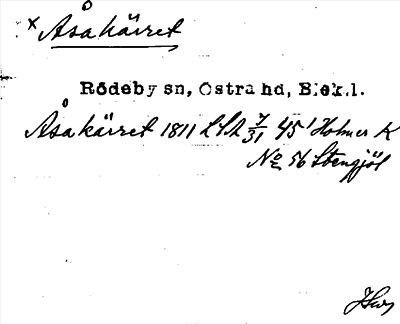 x Åsakärret
Rödeby sn, Östra hd, Blek.l.
Åsakärret 1811 LSA 7/31 45' Holmer K
No 56 Stengjöl